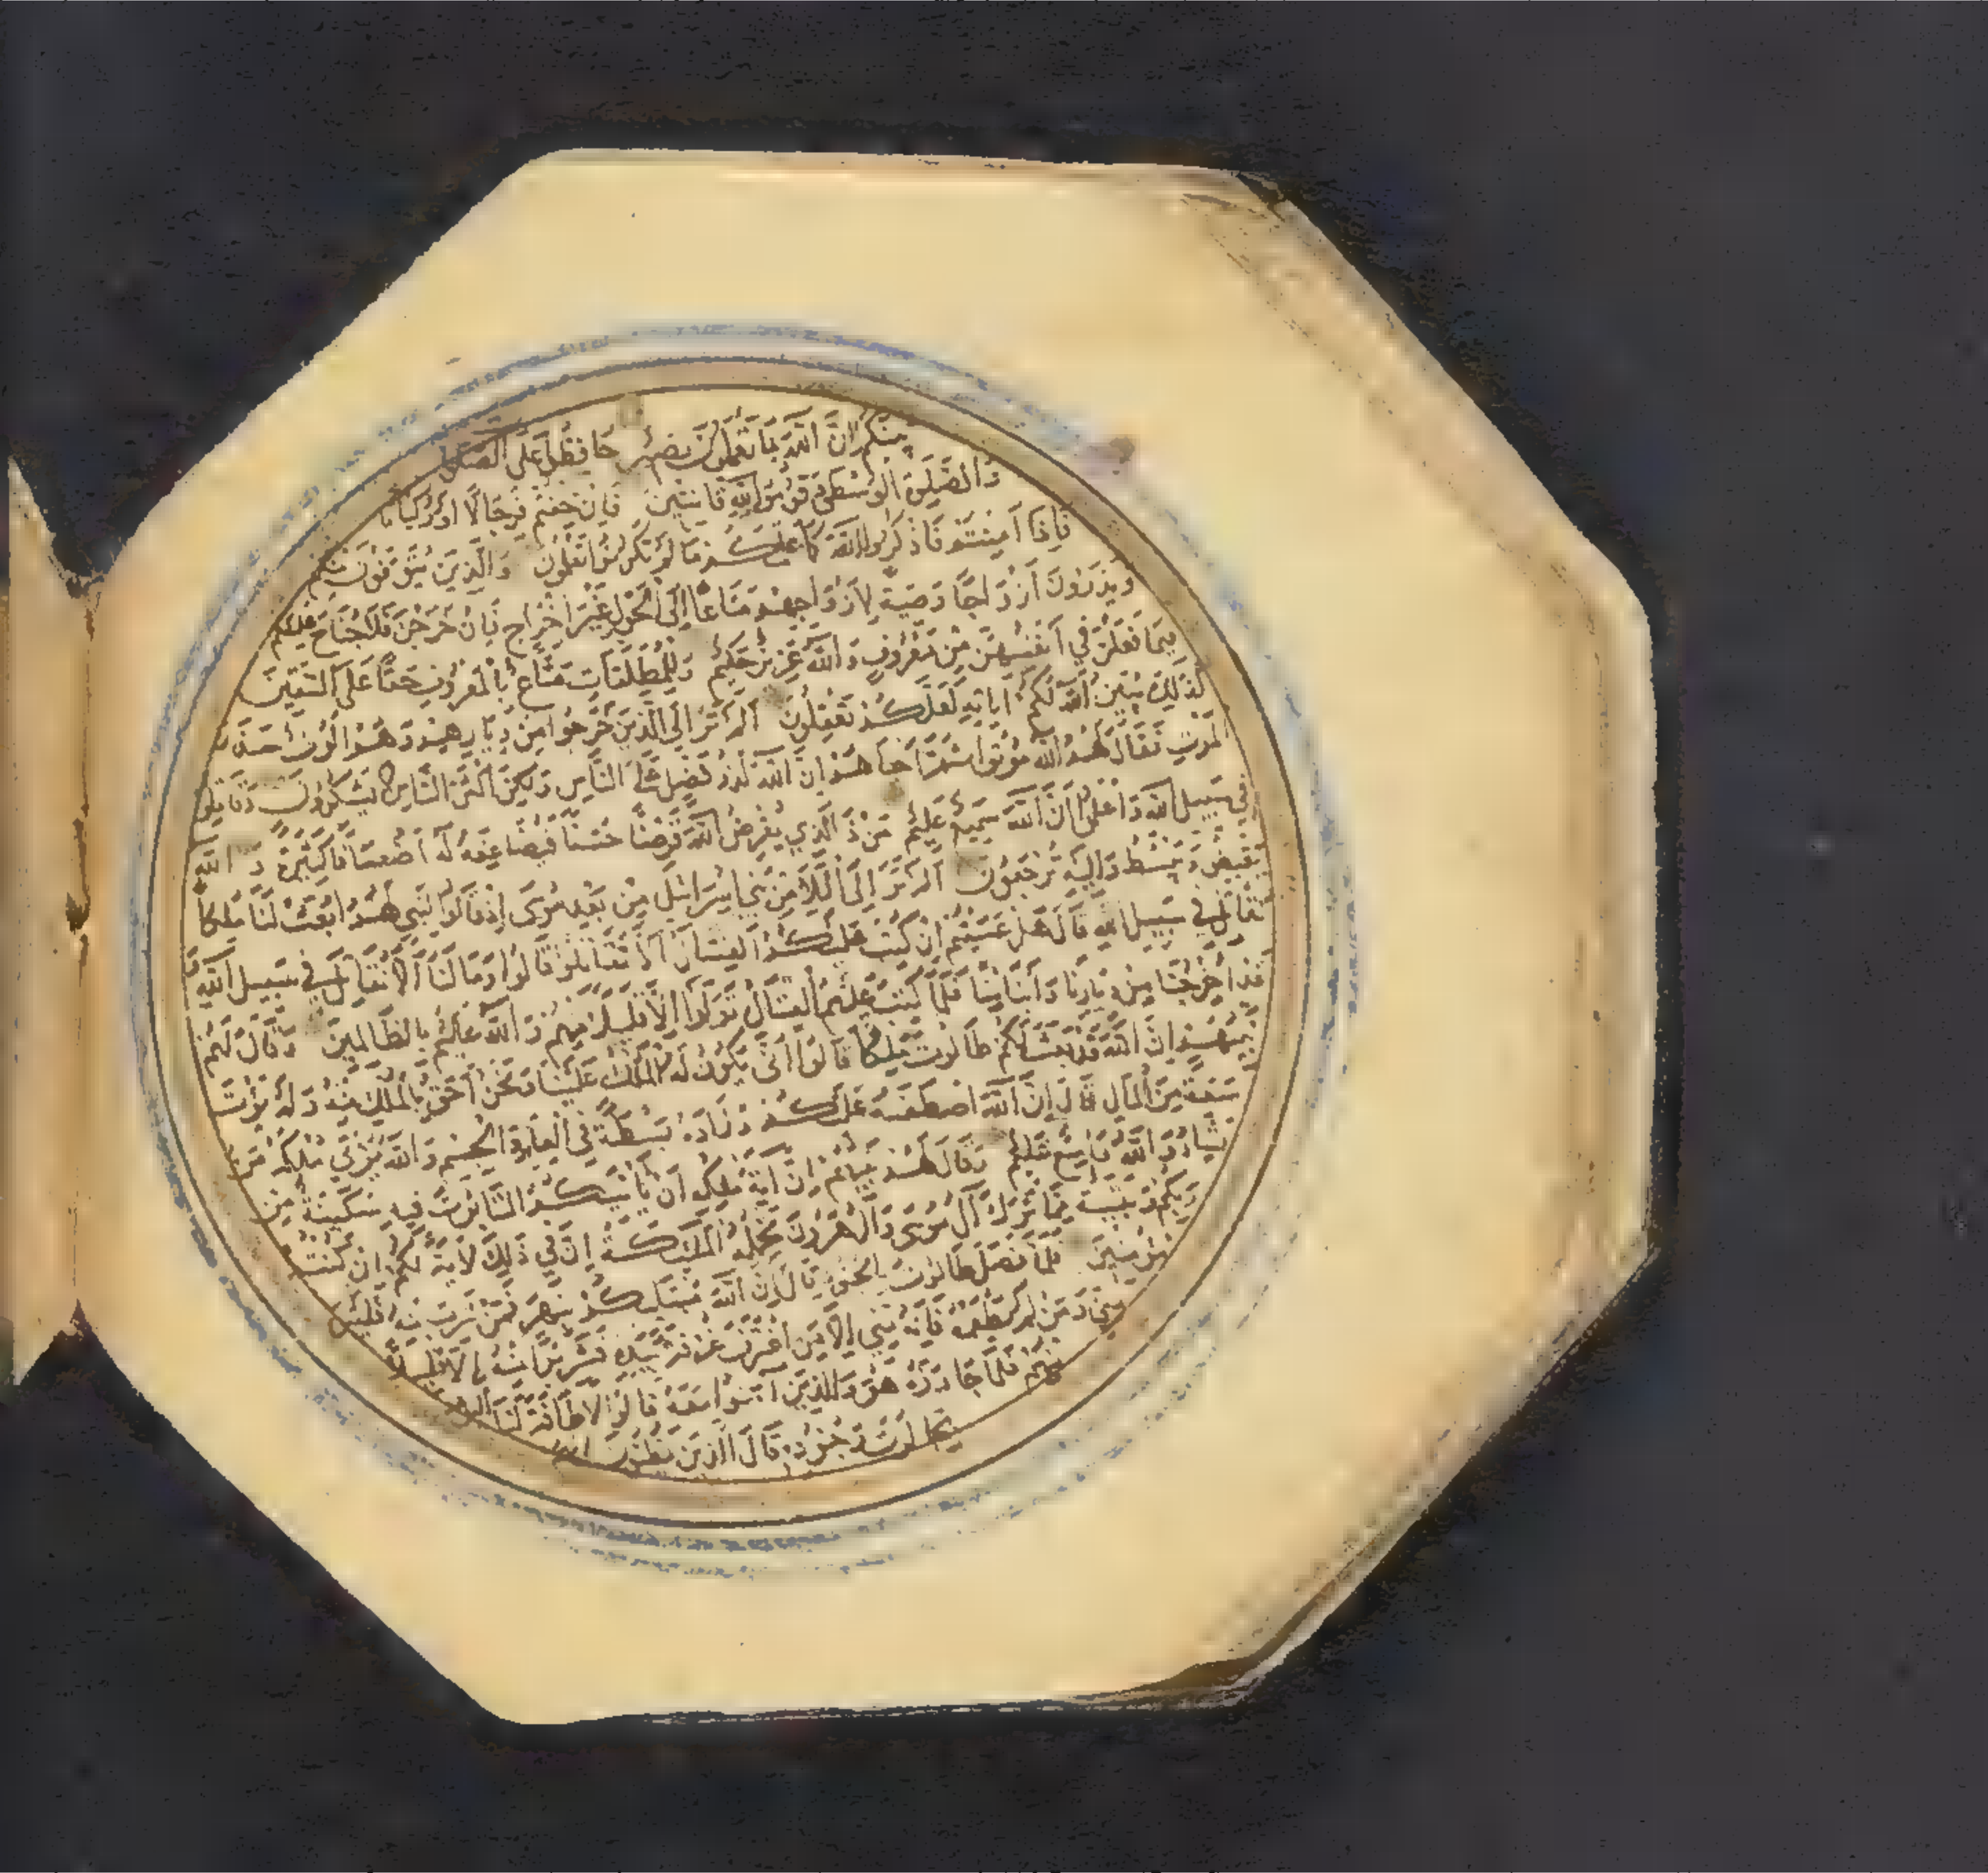 بينكم إن الله بما تعملون بصير حافظوا على الصلوات
والصلوة الوسطى وقوموا لله قانتين فإن خفتم فرجالا أو ركبانا
فإذا أمنتم فاذكروا الله كما علمكم ما لم تكونوا تعلمون والذين يتوفون منكم
ويذرون أزواجا وصية لأزواجهم متاعا إلى الحول غير إخراج فإن خرجن فلا جناح عليكم
فيما فعلن في أنفسهن من معروف والله عزيز حكيم وللمطلقات متاع بالمعروف حقا على المتقين
كذلك يبين الله لكم آياته لعلكم تعقلون ألم تر إلى الذين خرجوا من ديارهم وهم ألوف حذر
الموت فقال لهم الله موتوا ثم أحياهم إن الله لذو فضل على الناس ولكن أكثر الناس لا يشكرون وقاتلوا
في سبيل الله واعلموا أن الله سميع عليم من ذا الذي يقرض الله قرضا حسنا فيضاعفه له أضعافا كثيرة والله
يقبض ويبسط وإليه ترجعون ألم تر إلى الملأ من بني إسرائيل من بعد موسى إذ قالوا لنبي لهم ابعث لنا ملكا
نقاتل في سبيل الله قال هل عسيتم إن كتب عليكم القتال ألا تقاتلوا قالوا وما لنا ألا نقاتل في سبيل الله و
قد أخرجنا من ديارنا وأبنائنا فلما كتب عليهم القتال تولوا إلا قليلا منهم والله عليم بالظالمين وقال لهم
نبيهم إن الله قد بعث لكم طالوت ملكا قالوا أنى يكون له الملك علينا ونحن أحق بالملك منه ولم يؤت
سعة من المال قال إن الله اصطفيه عليكم وزاده بسطة في العلم والجسم والله يؤتي ملكه من
يشاء والله واسع عليم وقال لهم نبيهم إن آية ملكه أن يأتيكم التابوت فيه سكينة من
ربكم وبقية مما ترك آل موسى وآل هرون تحمله الملئكة إن في ذلك لآية لكم إن كنتم
مؤمنين فلما فصل طالوت بالجنود قال إن الله مبتليكم بنهر فمن شرب منه فليس
مني ومن لم يطعمه فإنه مني إلا من اغترف غرفة بيده فشربوا منه إلا قليلا
منهم فلما جاوزه هو والذين آمنوا معه قالوا لا طاقة لنا اليوم
بجالوت وجنوده قال الذين يظنون